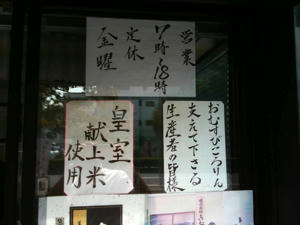 営業
7時〜18時
定休
金曜
おむすびころりん
支えて下さる
生産者の皆様
皇室
献上米
使用